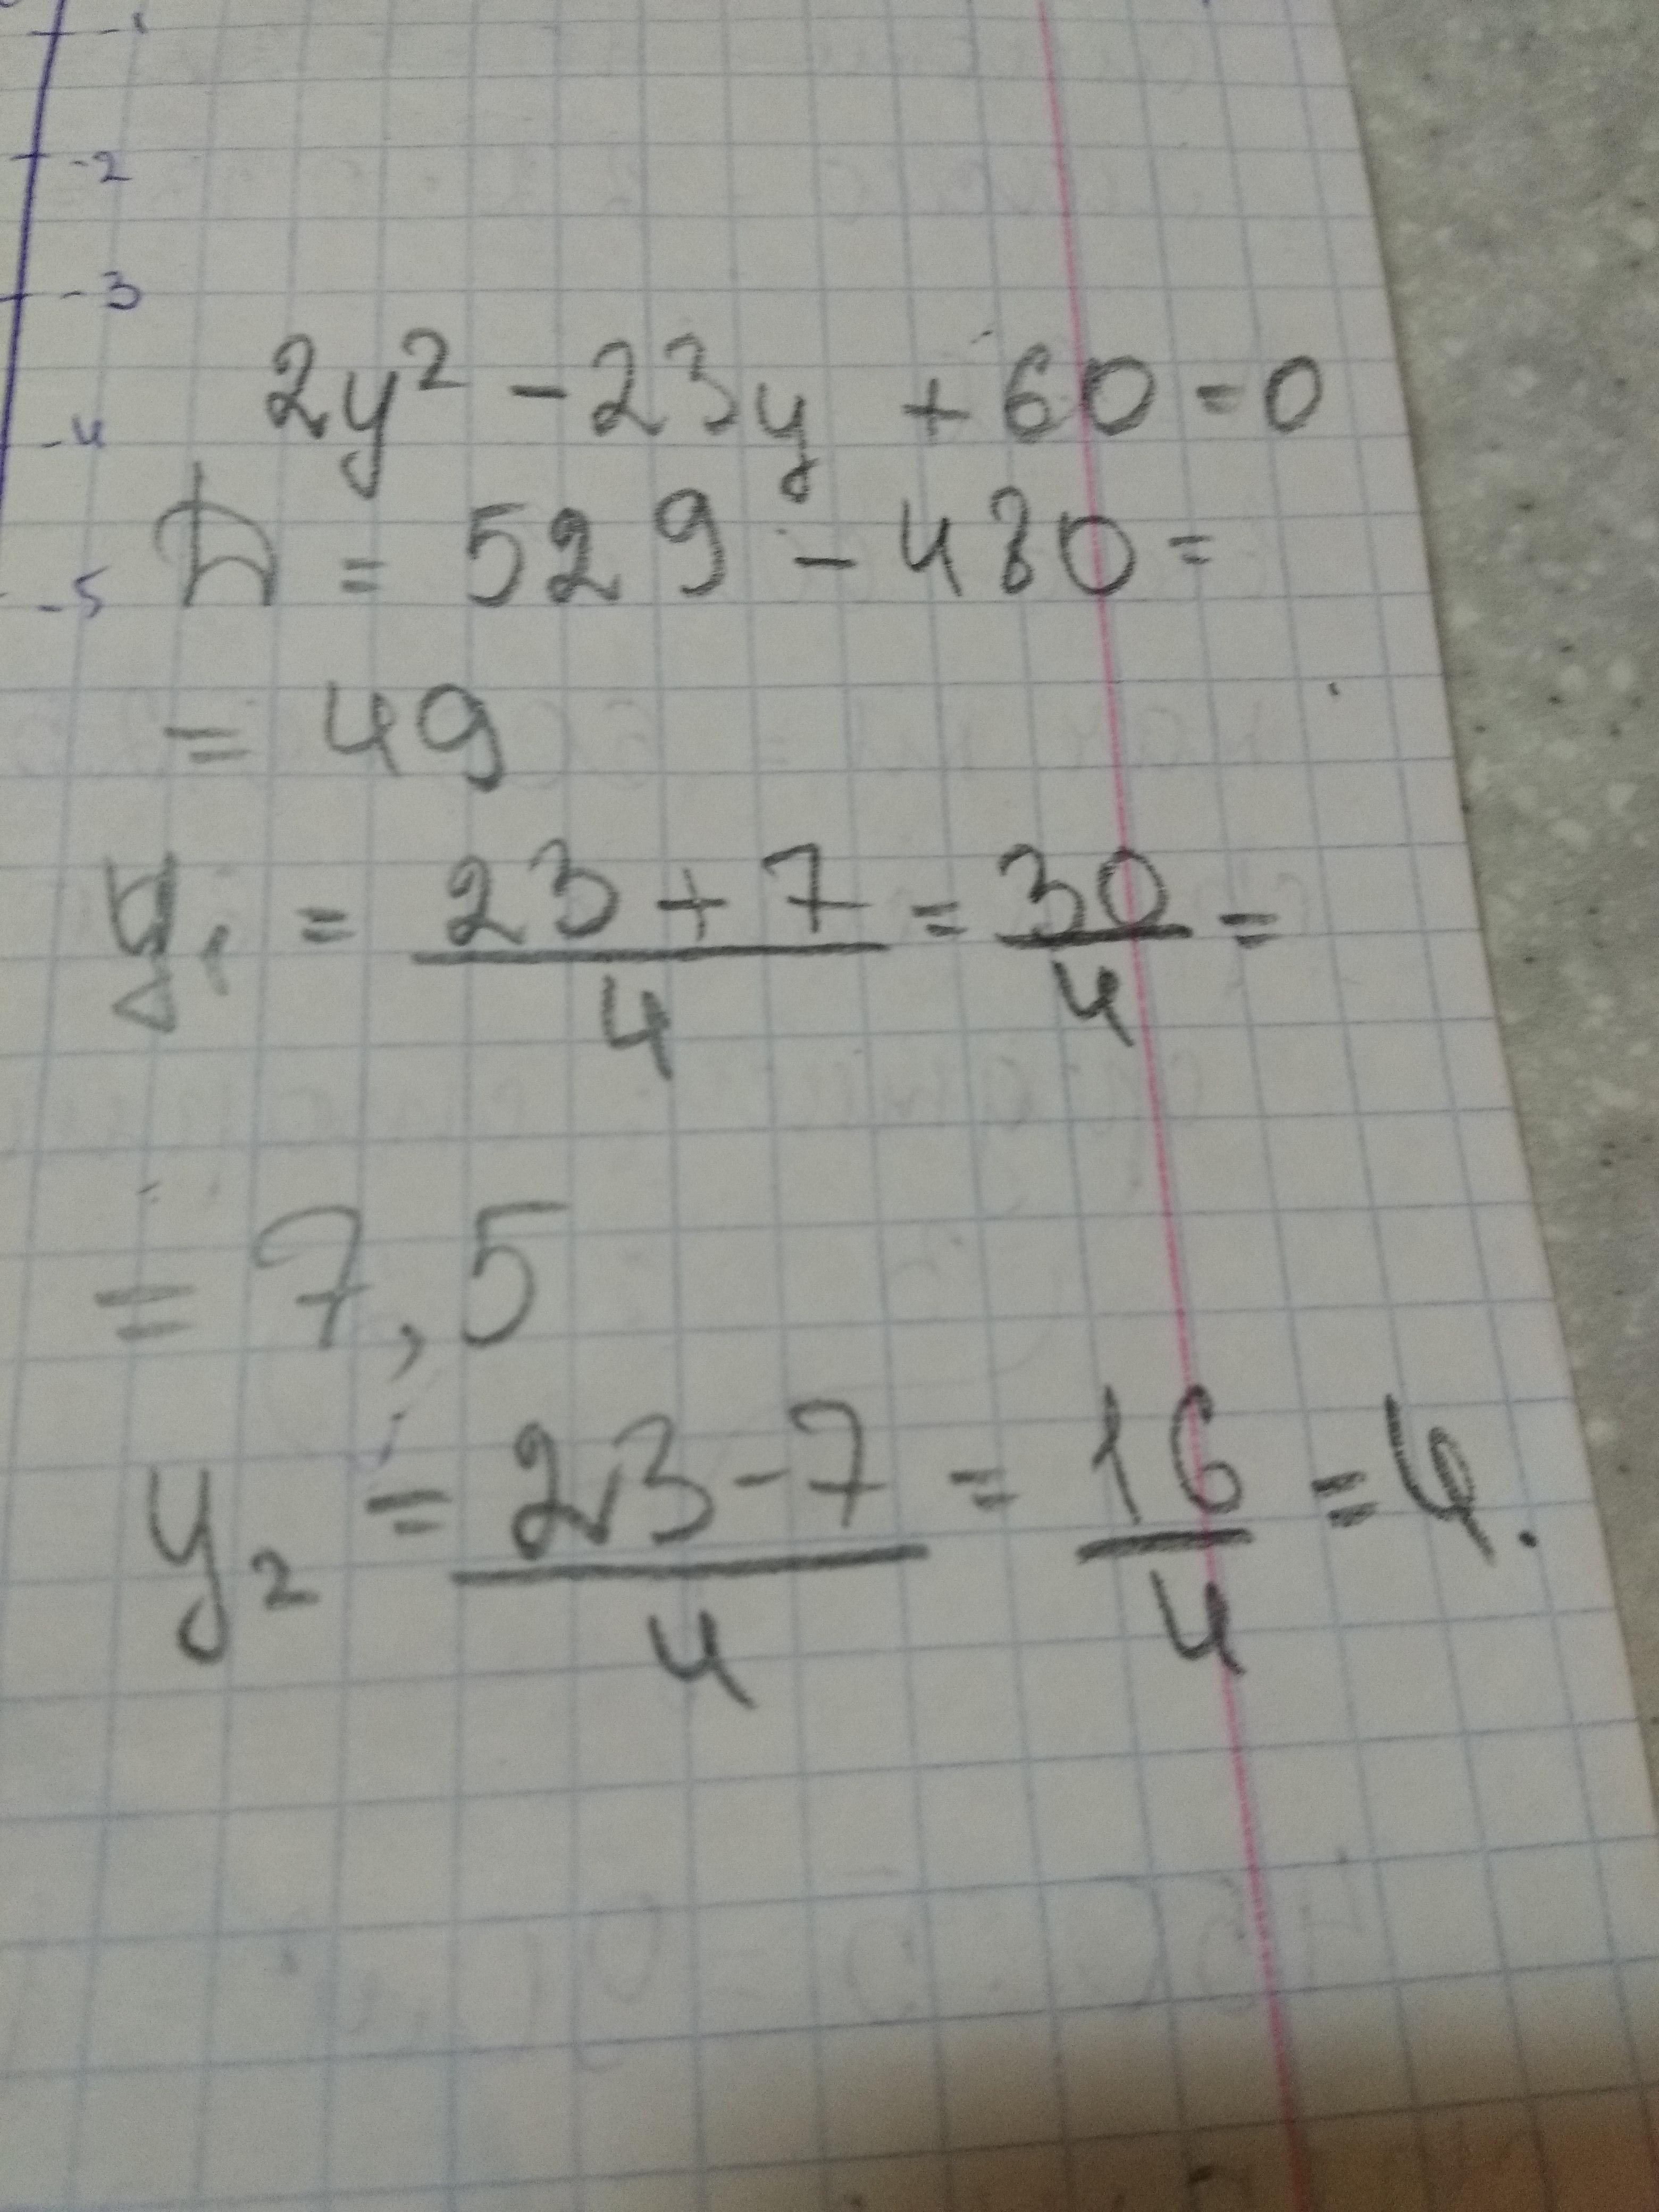 -1
-2
-3
2y² - 23y + 60 = 0
-4
D = 529 - 480 =
-5
= 49
y₁ = (23 + 7)/4 = 30/4 =
= 7,5
y₂ = (23 - 7)/4 = 16/4 = 4.